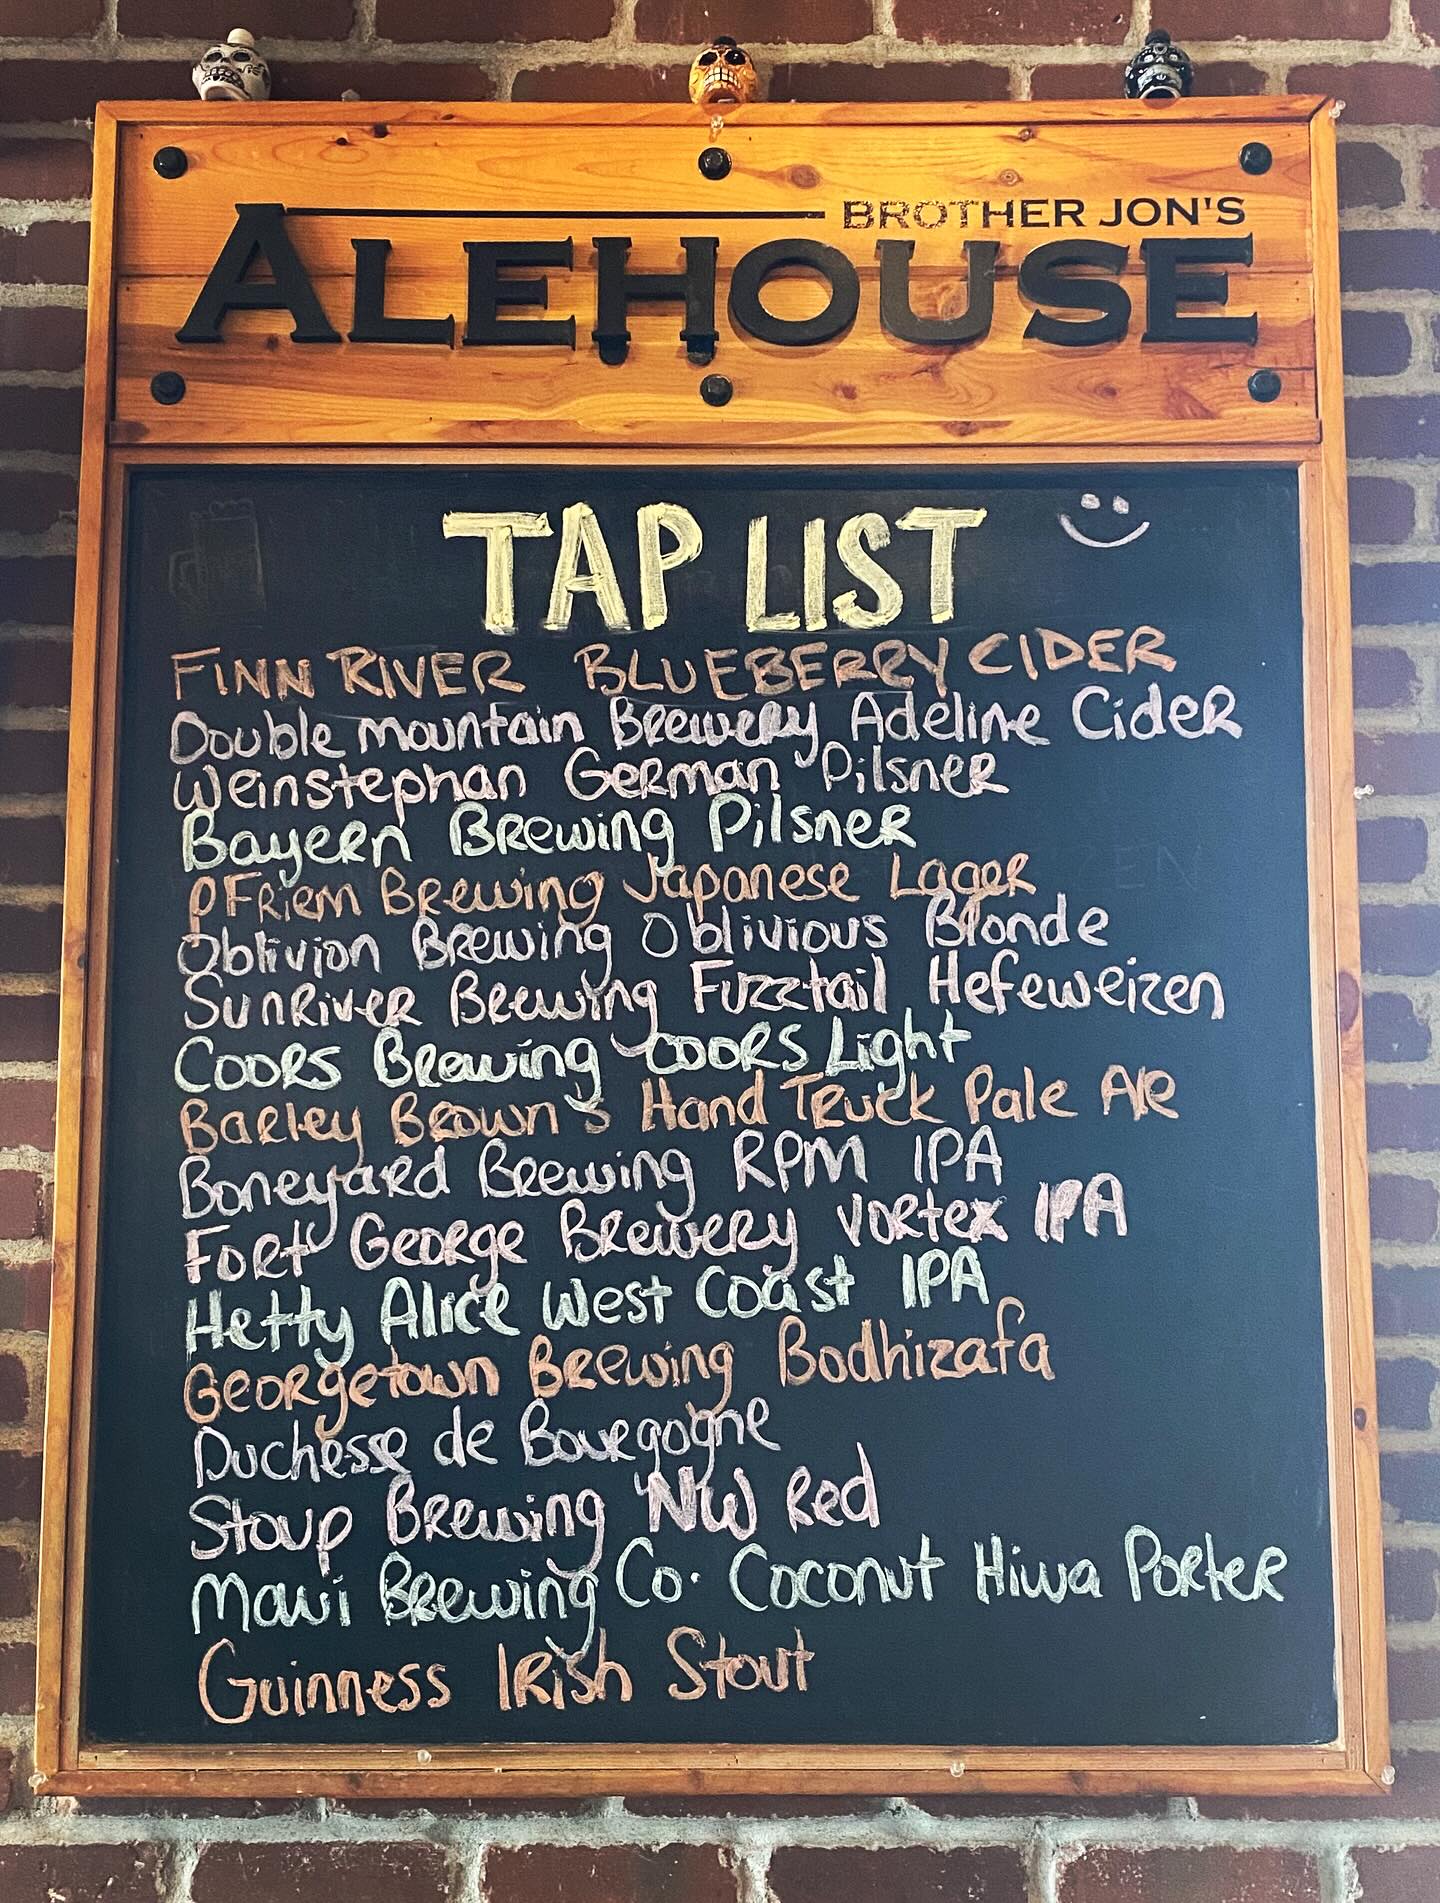 BROTHER JON'S
ALEHOUSE
TAP LIST
FINN RIVER BLUEBERRY CIDER
Double mountain Brewery Adeline Cider
Weinstephan German Pilsner
Bayern Brewing Pilsner
PFriem Brewing Japanese Lager
Oblivion Brewing Oblivious Blonde
SunRiver Brewing Fuzztail Hefeweizen
Coors Brewing Coors Light
Barley Brown's Hand Truck Pale Ale
Boneyard Brewing RPM IPA
Fort George Brewery Vortex IPA
Hetty Alice West Coast IPA
Georgetown Brewing Bodhizafa
Duchesse de Bourgogne
Stoup Brewing NW Red
Maui Brewing Co. Coconut Hiwa Porter
Guinness Irish Stout